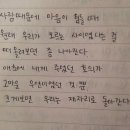 사람때문에 마음이 힘들 때
원래 우리가 모르는 사이였다는 걸
떠올려보면 좀 나아진다
애초에 내게 주었던 호의가
고마운 우연이었던 것 뿐
크게보면 우리는 제자리로 돌아간다